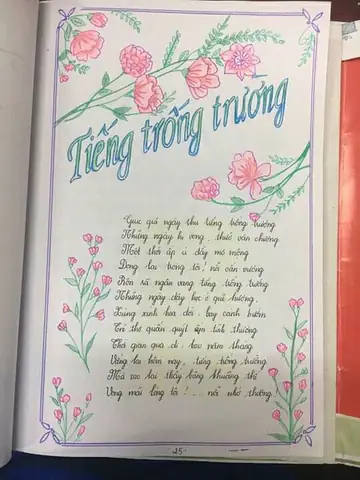 Tiếng trống trường
Qua quá ngày thu tiếng trống trường
Những ngày hi vọng, thuở văn chương
Một thời ấp ủ đầy mơ mộng
Đọng lại trong tôi! nỗi vấn vương
Rộn rã ngân vang tiếng trống trường
Những ngày dạy học ở quê hương
xinh hoa dại, bay cánh bướm
thơ quấn quýt tình thương
Thời gian qua đi bao năm tháng
Vẳng lại hôm nay, tiếng trống trường
Mà sao lại thấy bâng khuâng thế
Vọng mãi lòng tôi! ... nỗi nhớ thương.
25